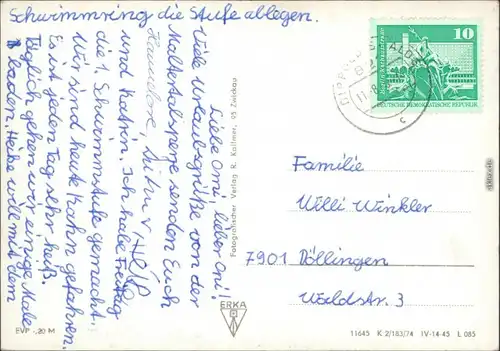 Liebe Omi, lieber Opi!
Viele Urlaubsgrüße von der
Maltertalsperre senden Euch
Hannelore,
und Katrin. Ich habe Freitag
die 1. Schwimmstufe gemacht.
Wir sind heute Kahn gefahren.
Es ist jeden Tag sehr heiß.
Täglich gehen wir einige Male
baden. Heike will mit dem
Schwimmring die Stufe ablegen.
Fotografischer Verlag R. Kallmer, 95 Zwickau
ERKA
EVP -,20 M
10
DEUTSCHE DEMOKRATISCHE REPUBLIK
DIPPOLDISWALDE
c
Familie
Willi Winkler
7901 Döllingen
Waldstr. 3
11645 K 2/183/74 IV-14-45 L 085